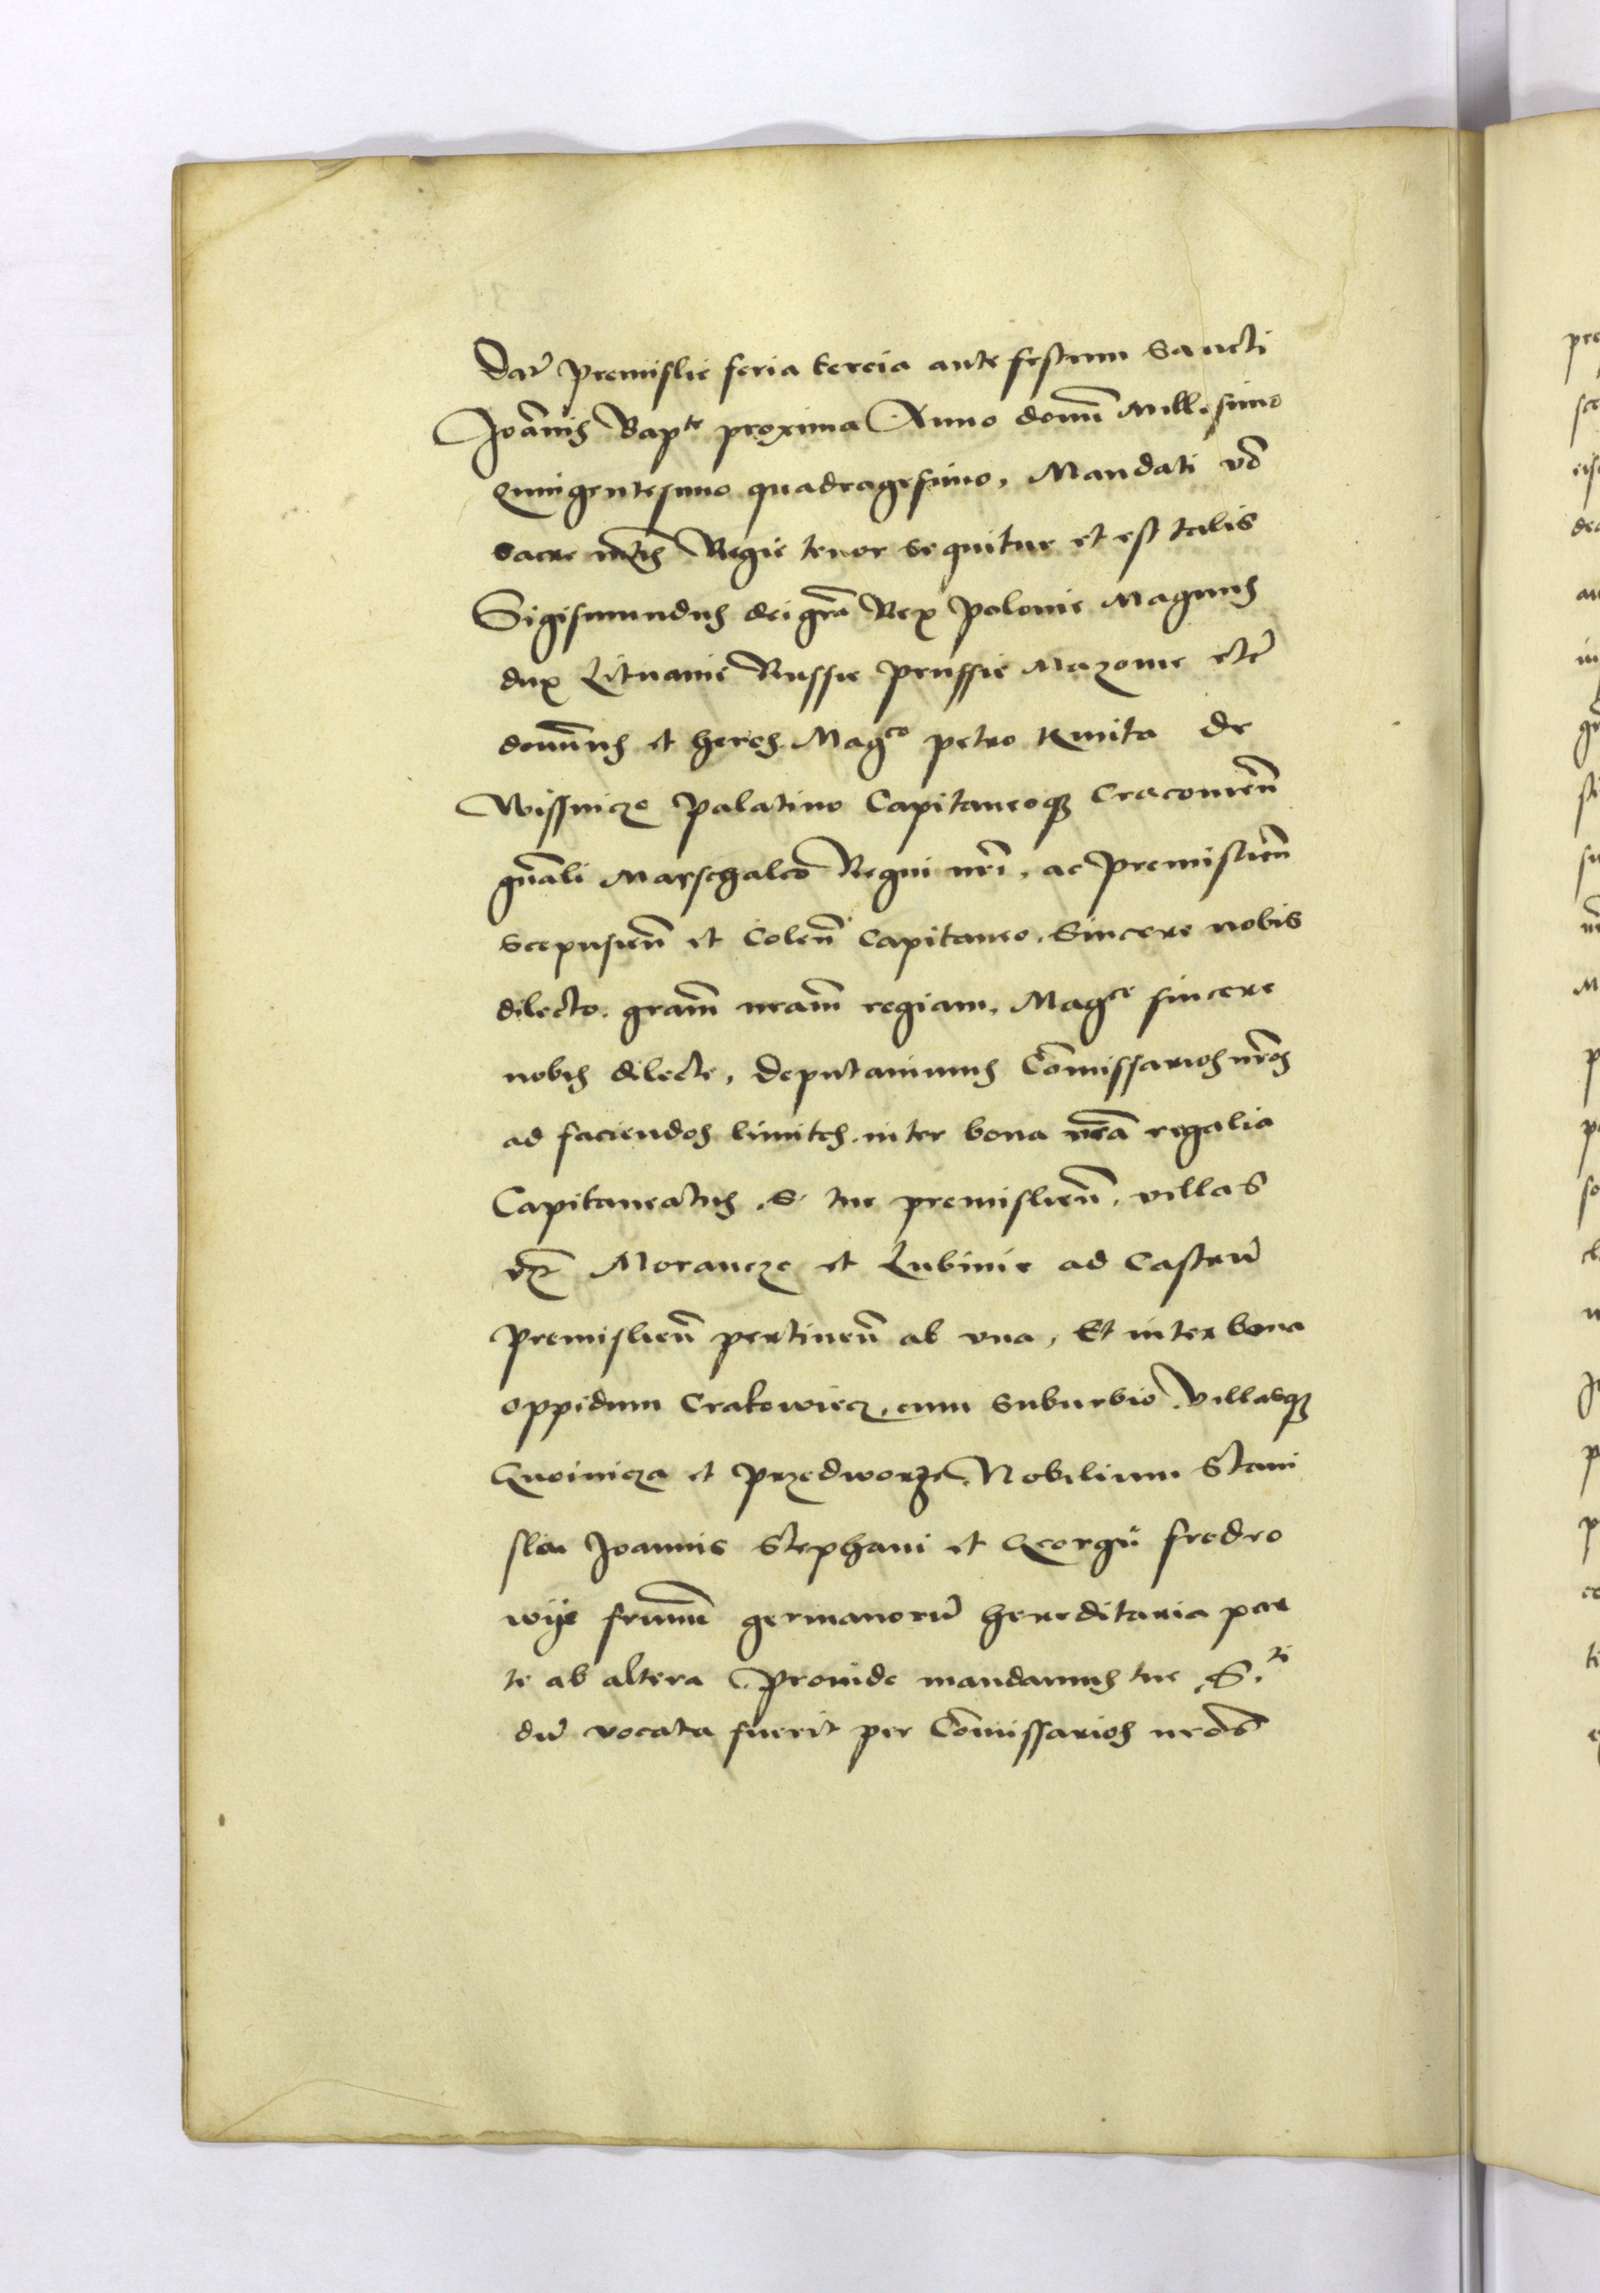 Dat̃ premislie feria tercia ante festum Sancti
Joãnis Bap^te proxima Anno domĩ Millesimo
Quingentesimo quadragesimo, Mandati v̄o
Sacre m̃tis Regie tenor sequitur et est talis
Sigismundus dei gr̃a Rex Polonie Magnus
dux Lituanie Russie Prussie Mazouie etc̃
domĩnus et heres Mag^co petro Kmita de
Wissnicze Palatino Capitaneoq₃ Cracouieñ
gñali Marschalco Regni nr̃i, ac Premislieñ
Scepusieñ et Coleñ Capitaneo. Sincere nobis
dilecto. gram̃ nram̃ regiam, Mag^ce sincere
nobis dilecte, deputauimus Cõmissarios nr̃os
ad faciendos limites inter bona nr̃a regalia
Capitaneatus .S. tue premislieñ, villas
vz̃ Morancze et Lubinie ad Castrũ
Premislieñ pertineñ ab vna, Et inter bona
oppidum Crakowiecz, cum suburbio, villasq₃
Gnoinicza et Przedworze, Nobilium Stani
slai Joannis Stephani et Georgij fredro
wije frum̃ germanorũ hereditaria par
te ab altera Prouide mandamus tue .S.^ti
dũ vocata fuerit per Cõmissarios nr̃os